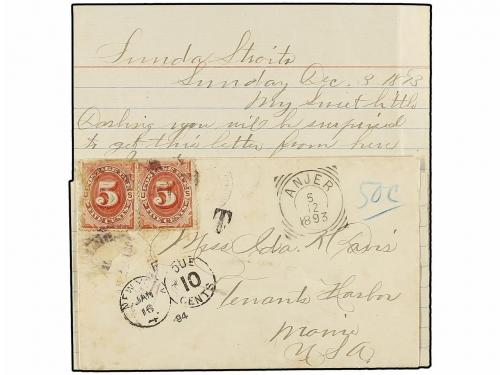 Sunda Straits
Sunday Dec. 3 1893
My Sweet little
Darling you will be surprised
to get this letter from here
5 5
FIVE CENTS
T
ANJER
5
12
1893
50C
Miss Ida K Davis
NEW YORK
JAN
16
DUE
10
CENTS
94
Tenants Harbor
Maine
USA